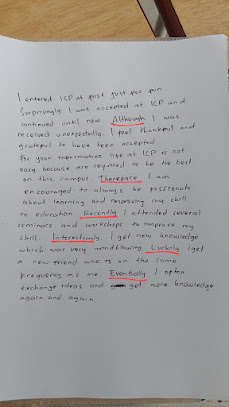 I entered ICP at first just for fun
Surprisingly I was accepted at ICP and
continued until now. Although I was
received unexpectedly, I feel thankful and
grateful to have been accepted.
For your information life at ICP is not
easy because are required to be the best
on this campus. Therefore I am
encouraged to always be passionate
about learning and improving my skill
in education. Recently I attended several
seminars and workshops to improve my
skill. Interestingly, I get new knowledge
which was very mindblowing. Luckily, I get
a new friend who is on the same
frequency as me. Eventually I often
exchange ideas and get more knowledge
again and again